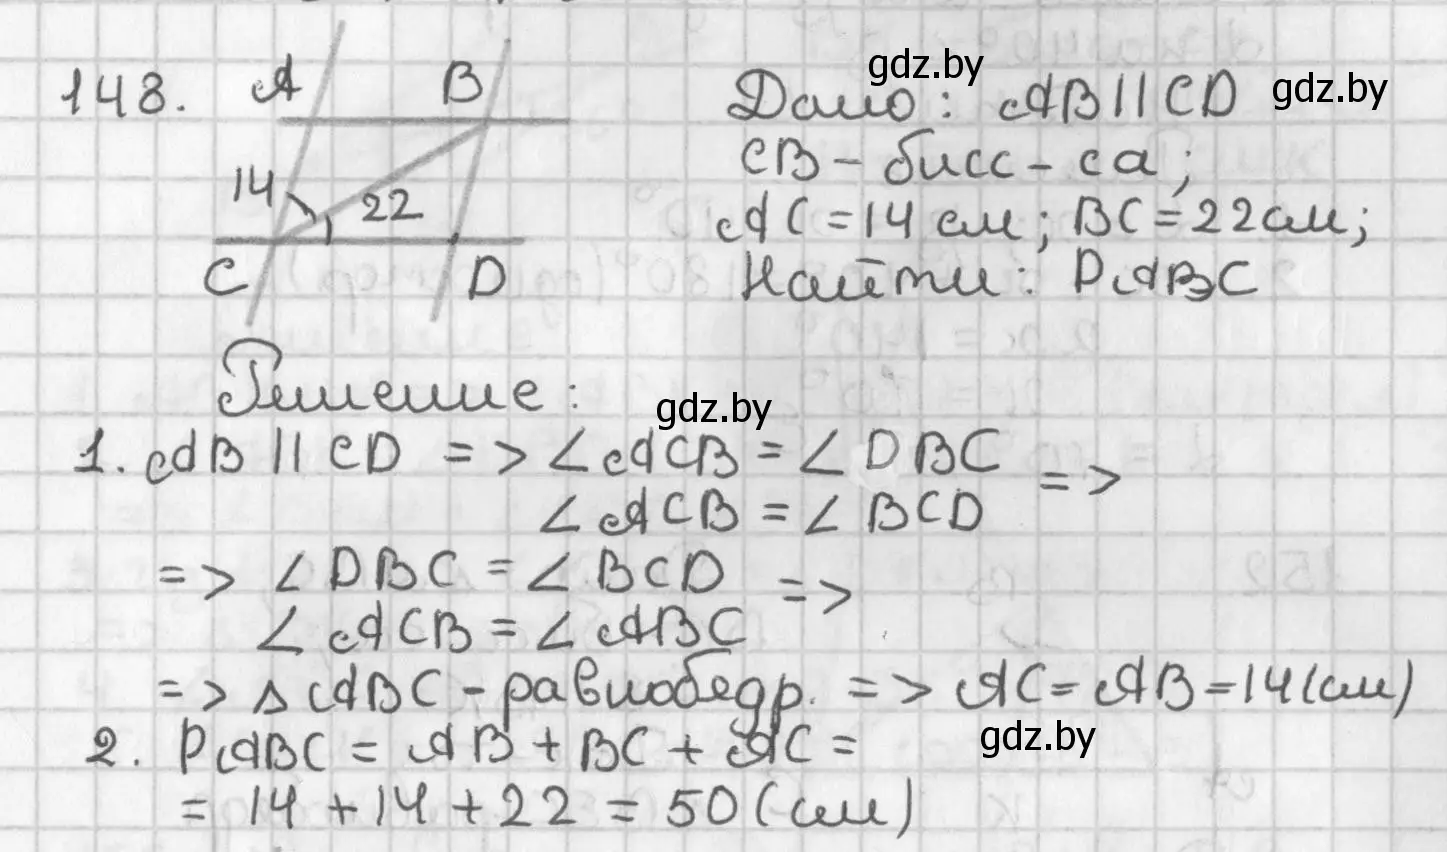 148. A B
14 22
C D
gdz.by gdz.by
Дано: AB || CD
CB - бисс-са;
AC = 14 см; BC = 22 см;
Найти: PABC
Решение:
gdz.by
1. AB || CD => ∠ACB = ∠DBC
∠ACB = ∠BCD =>
=> ∠DBC = ∠BCD
∠ACB = ∠ABC =>
=> ΔABC - равнобедр. => AC = AB = 14 (см)
gdz.by
2. PABC = AB + BC + AC =
= 14 + 14 + 22 = 50 (см)